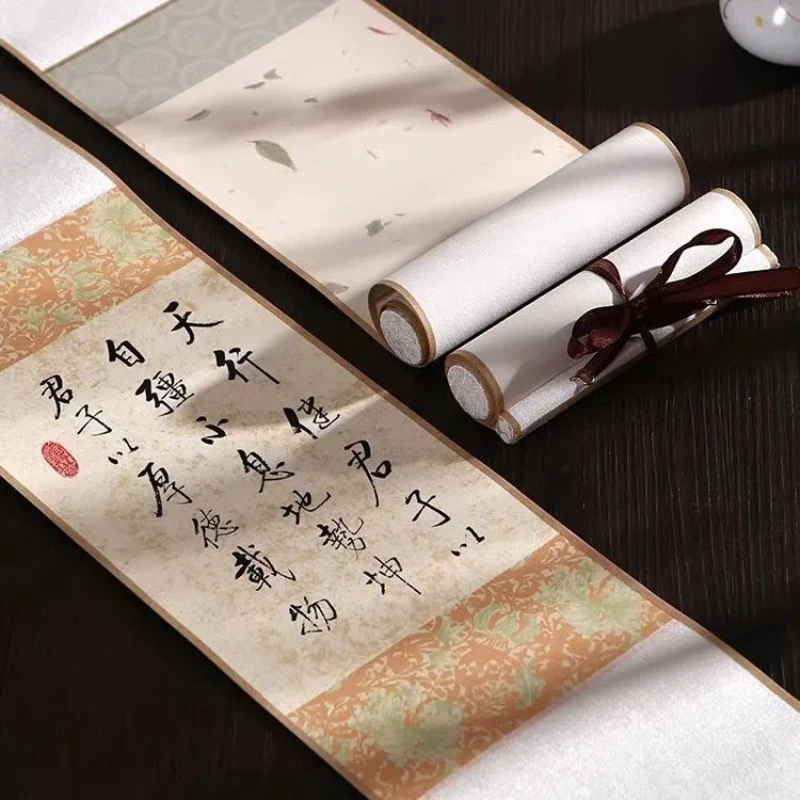 天行健君子以
自疆不息地勢坤
君子以厚德載物